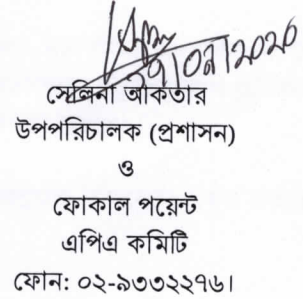 সেলিনা আকতার
উপপরিচালক (প্রশাসন)
ও
ফোকাল পয়েন্ট
এপিএ কমিটি
ফোন: ০২-৯৩৩২২৭৬।